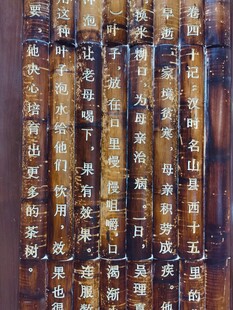 卷四十记："汉时名山县西十五里的
早逝，家境贫寒，母亲积劳成疾。他
换米糊口，为母亲治病。一日，吴理真
叶子放在口里慢慢咀嚼。口渴渐
泡让老母喝下，果有效果。连服数
用这种叶子泡水给他们饮用，效果也很
要，他决心培育出更多的茶树。